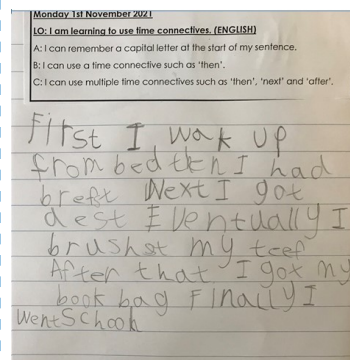 Monday 1st November 2021
LO: I am learning to use time connectives. (ENGLISH)
A: I can remember a capital letter at the start of my sentence.
B: I can use a time connective such as 'then'.
C: I can use multiple time connectives such as 'then', 'next' and 'after'.
First I wak up
from bed then I had
breft Next I got
dest Eventually I
brushst my teef
After that I got my
book bag Finally I
went School